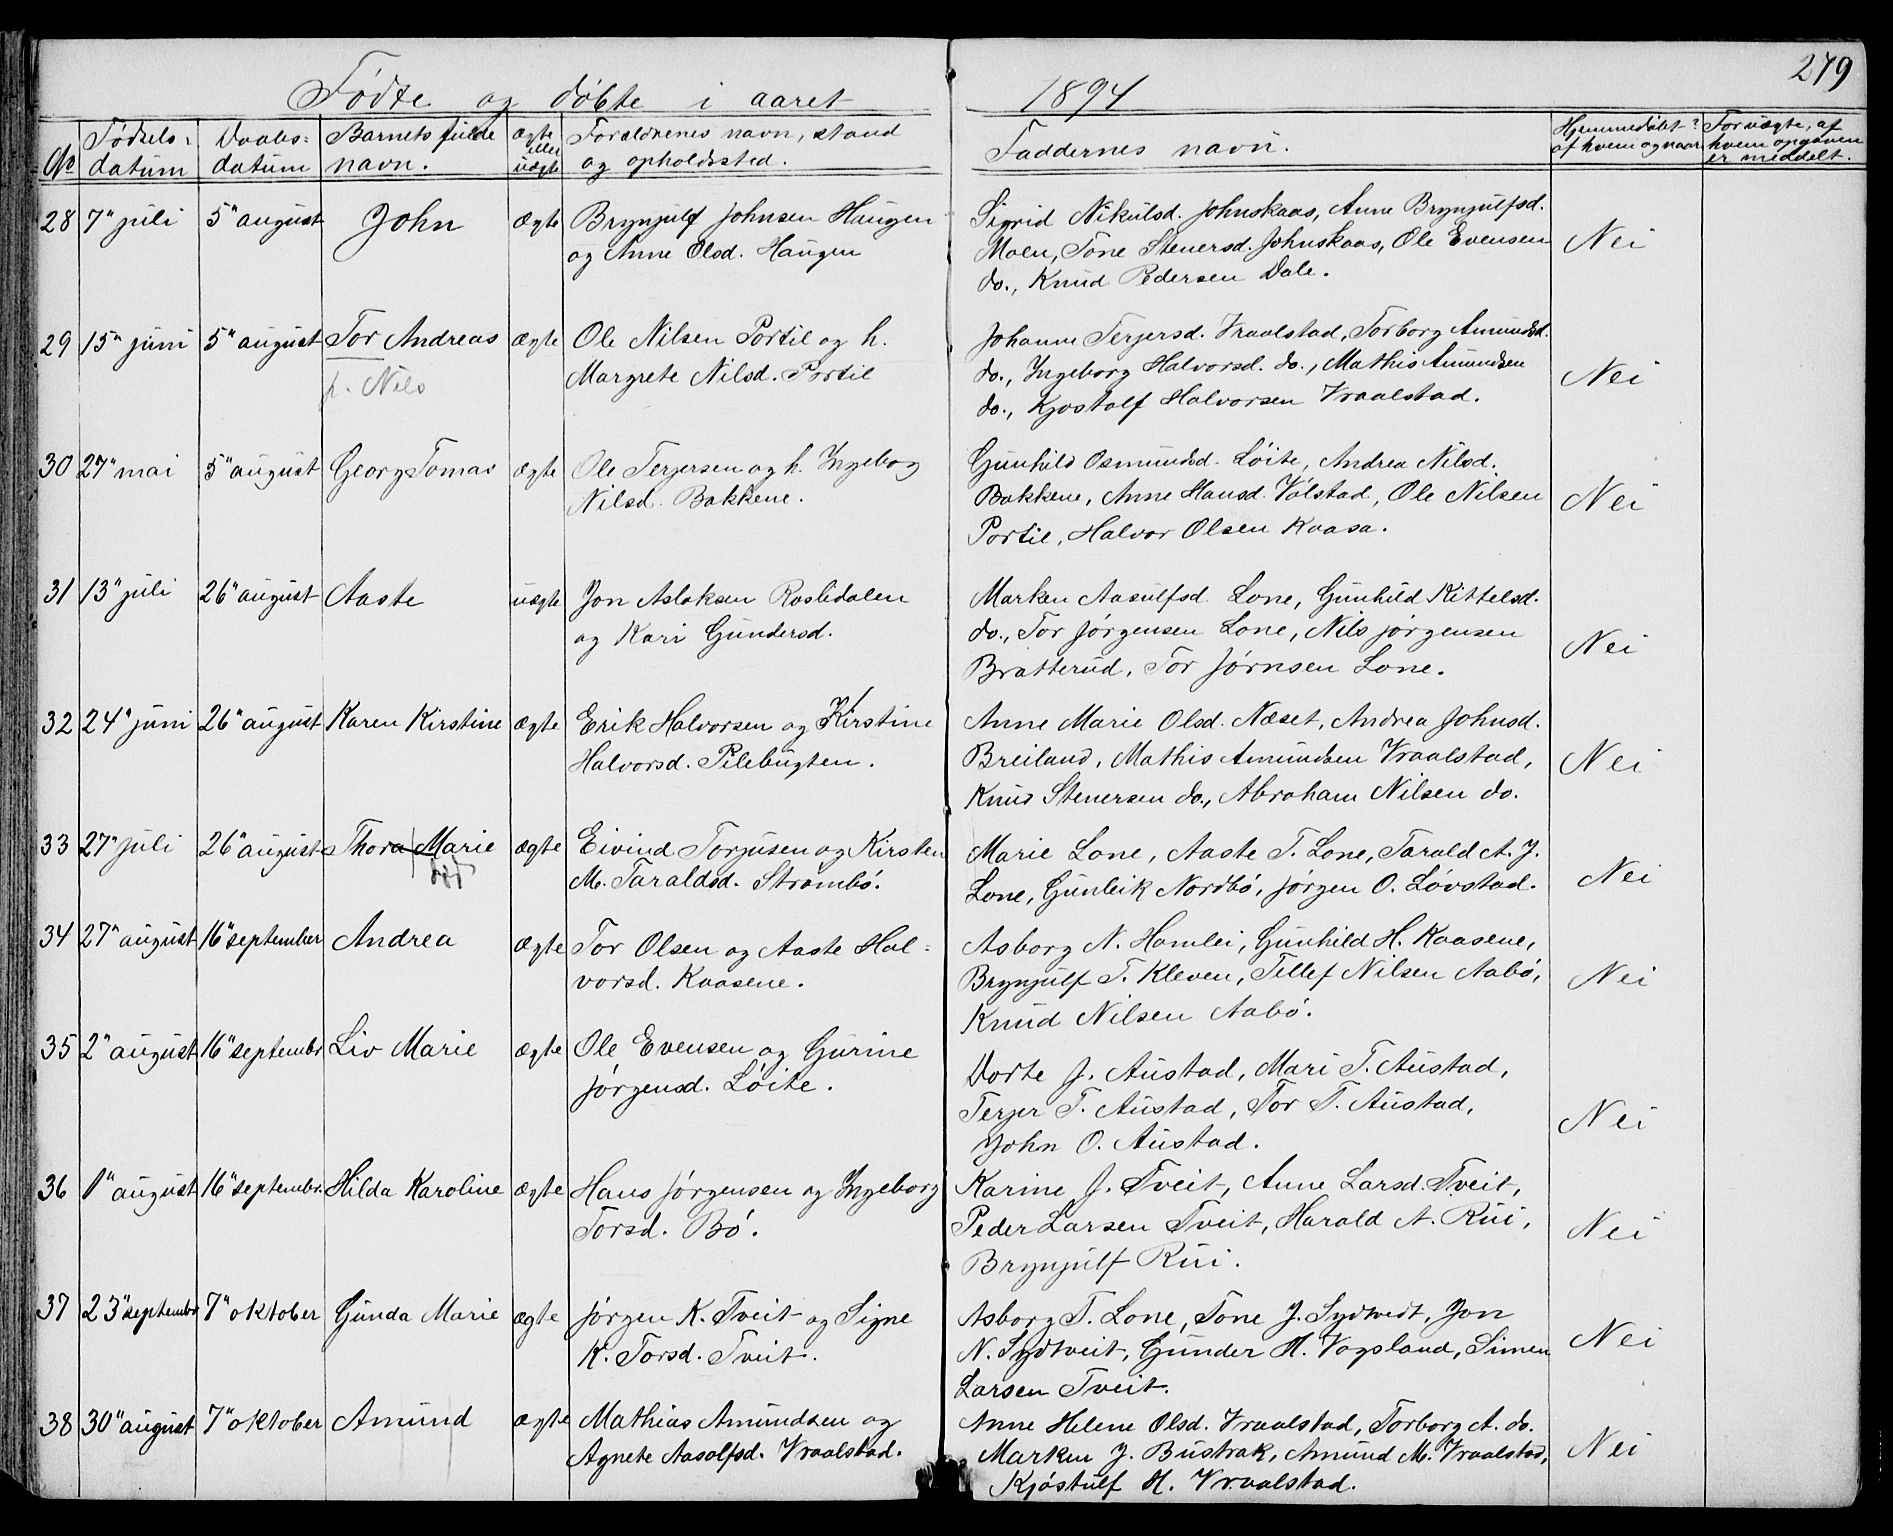 279
Fødte og døbte i aaret 1894
No Fødsels-datum Daabs-datum Barnets fulde navn. ægte eller uægte Forældrenes navn, stand og opholdssted. Faddernes navn. Hjemmedøbt? af hvem og naar. For uægte, af hvem opgaven er meddelt.
28 7" juli 5" august John ægte Brynjulf Johnsen Haugen
og Anne Olsd. Haugen
Sigrid Nikulsd. Johnskaas, Anne Brynjulfsd.
Moen, Tone Stenersd. Johnskaas, Ole Evensen
do., Knud Pedersen Dale.
Nei
29 15" juni 5" august Tor Andreas ægte Ole Nilsen Portil og h.
p. Nils
Margrete Nilsd. Portil
Johanne Terjersd. Vraalstad, Torborg Amundsd.
do., Ingeborg Halvorsd. do., Mathis Amundsen
do., Kjøstolf Halvorsen Vraalstad.
Nei
30 27" mai 5" august Georg Tomas ægte Ole Terjersen og h. Ingebog
Nilsd. Bakkene.
Gunhild Osmundsd. Løite, Andrea Nilsd.
Bakkene, Anne Hansd. Volstad, Ole Nilsen
Portil, Halvor Olsen Kaasa.
Nei
31 13" juli 26" august Aaste uægte Jon Aslaksen Roslidalen
og Kari Gundersd.
Marken Aasulfsd. Lone, Gunhild Kittelsd.
do., Tor Jørgensen Lone, Nils Jørgensen
Bratterud, Tor Jørnsen Lone.
Nei
32 24" juni 26" august Karen Kirstine ægte Erik Halvorsen og Kirstine
Halvorsd. Pilebugten.
Anne Marie Olsd. Næset, Andrea Johnsd.
Breiland, Mathis Amundsen Vraalstad,
Knud Stenersen do., Abraham Nilsen do.
Nei
33 27" juli 26" august Thora Marie ægte Eivind Torjusen og Kirsten
død
M. Taraldsd. Strømbø.
Marie Lone, Aaste T. Lone, Tarald A. J.
Lone, Gunleik Nordbø, Jørgen O. Løvstad.
Nei
34 27" august 16" september Andrea ægte Tor Olsen og Aaste Hal-
vorsd. Kaasene.
Asborg N. Homlei, Gunhild H. Kaasene,
Brynjulf T. Kleven, Tellef Nilsen Aabø,
Knud Nilsen Aabø.
Nei
35 2" august 16" septembr Liv Marie ægte Ole Evensen og Gurine
Jørgensd. Løite.
Dorte J. Austad, Mari T. Austad,
Terjer T. Austad, Tor T. Austad,
John O. Austad.
Nei
36 1" august 16" septembr. Hilda Karoline ægte Hans Jørgensen og Ingeborg
Torsd. Bø.
Karine J. Tveit, Anne Larsd. Tveit,
Peder Larsen Tveit, Harald A. Rui,
Brynjulf Rui.
Nei
37 23" septembr 7" oktober Gunda Marie ægte Jørgen K. Tveit og Signe
K. Torsd. Tveit.
Asborg T. Lone, Tone J. Sydtvedt, Jon
N. Sydtveit, Gunder H. Vagsland, Simen
Larsen Tveit.
Nei
38 30" august 7" oktober Amund ægte Mathias Amundsen og
Agnete Aasolfsd. Vraalstad.
Anne Helene Olsd. Vraalstad, Torborg A. do.
Marken J. Bustrak, Amund M. Vraalstad,
Kjøstulf H. Vraalstad.
Nei